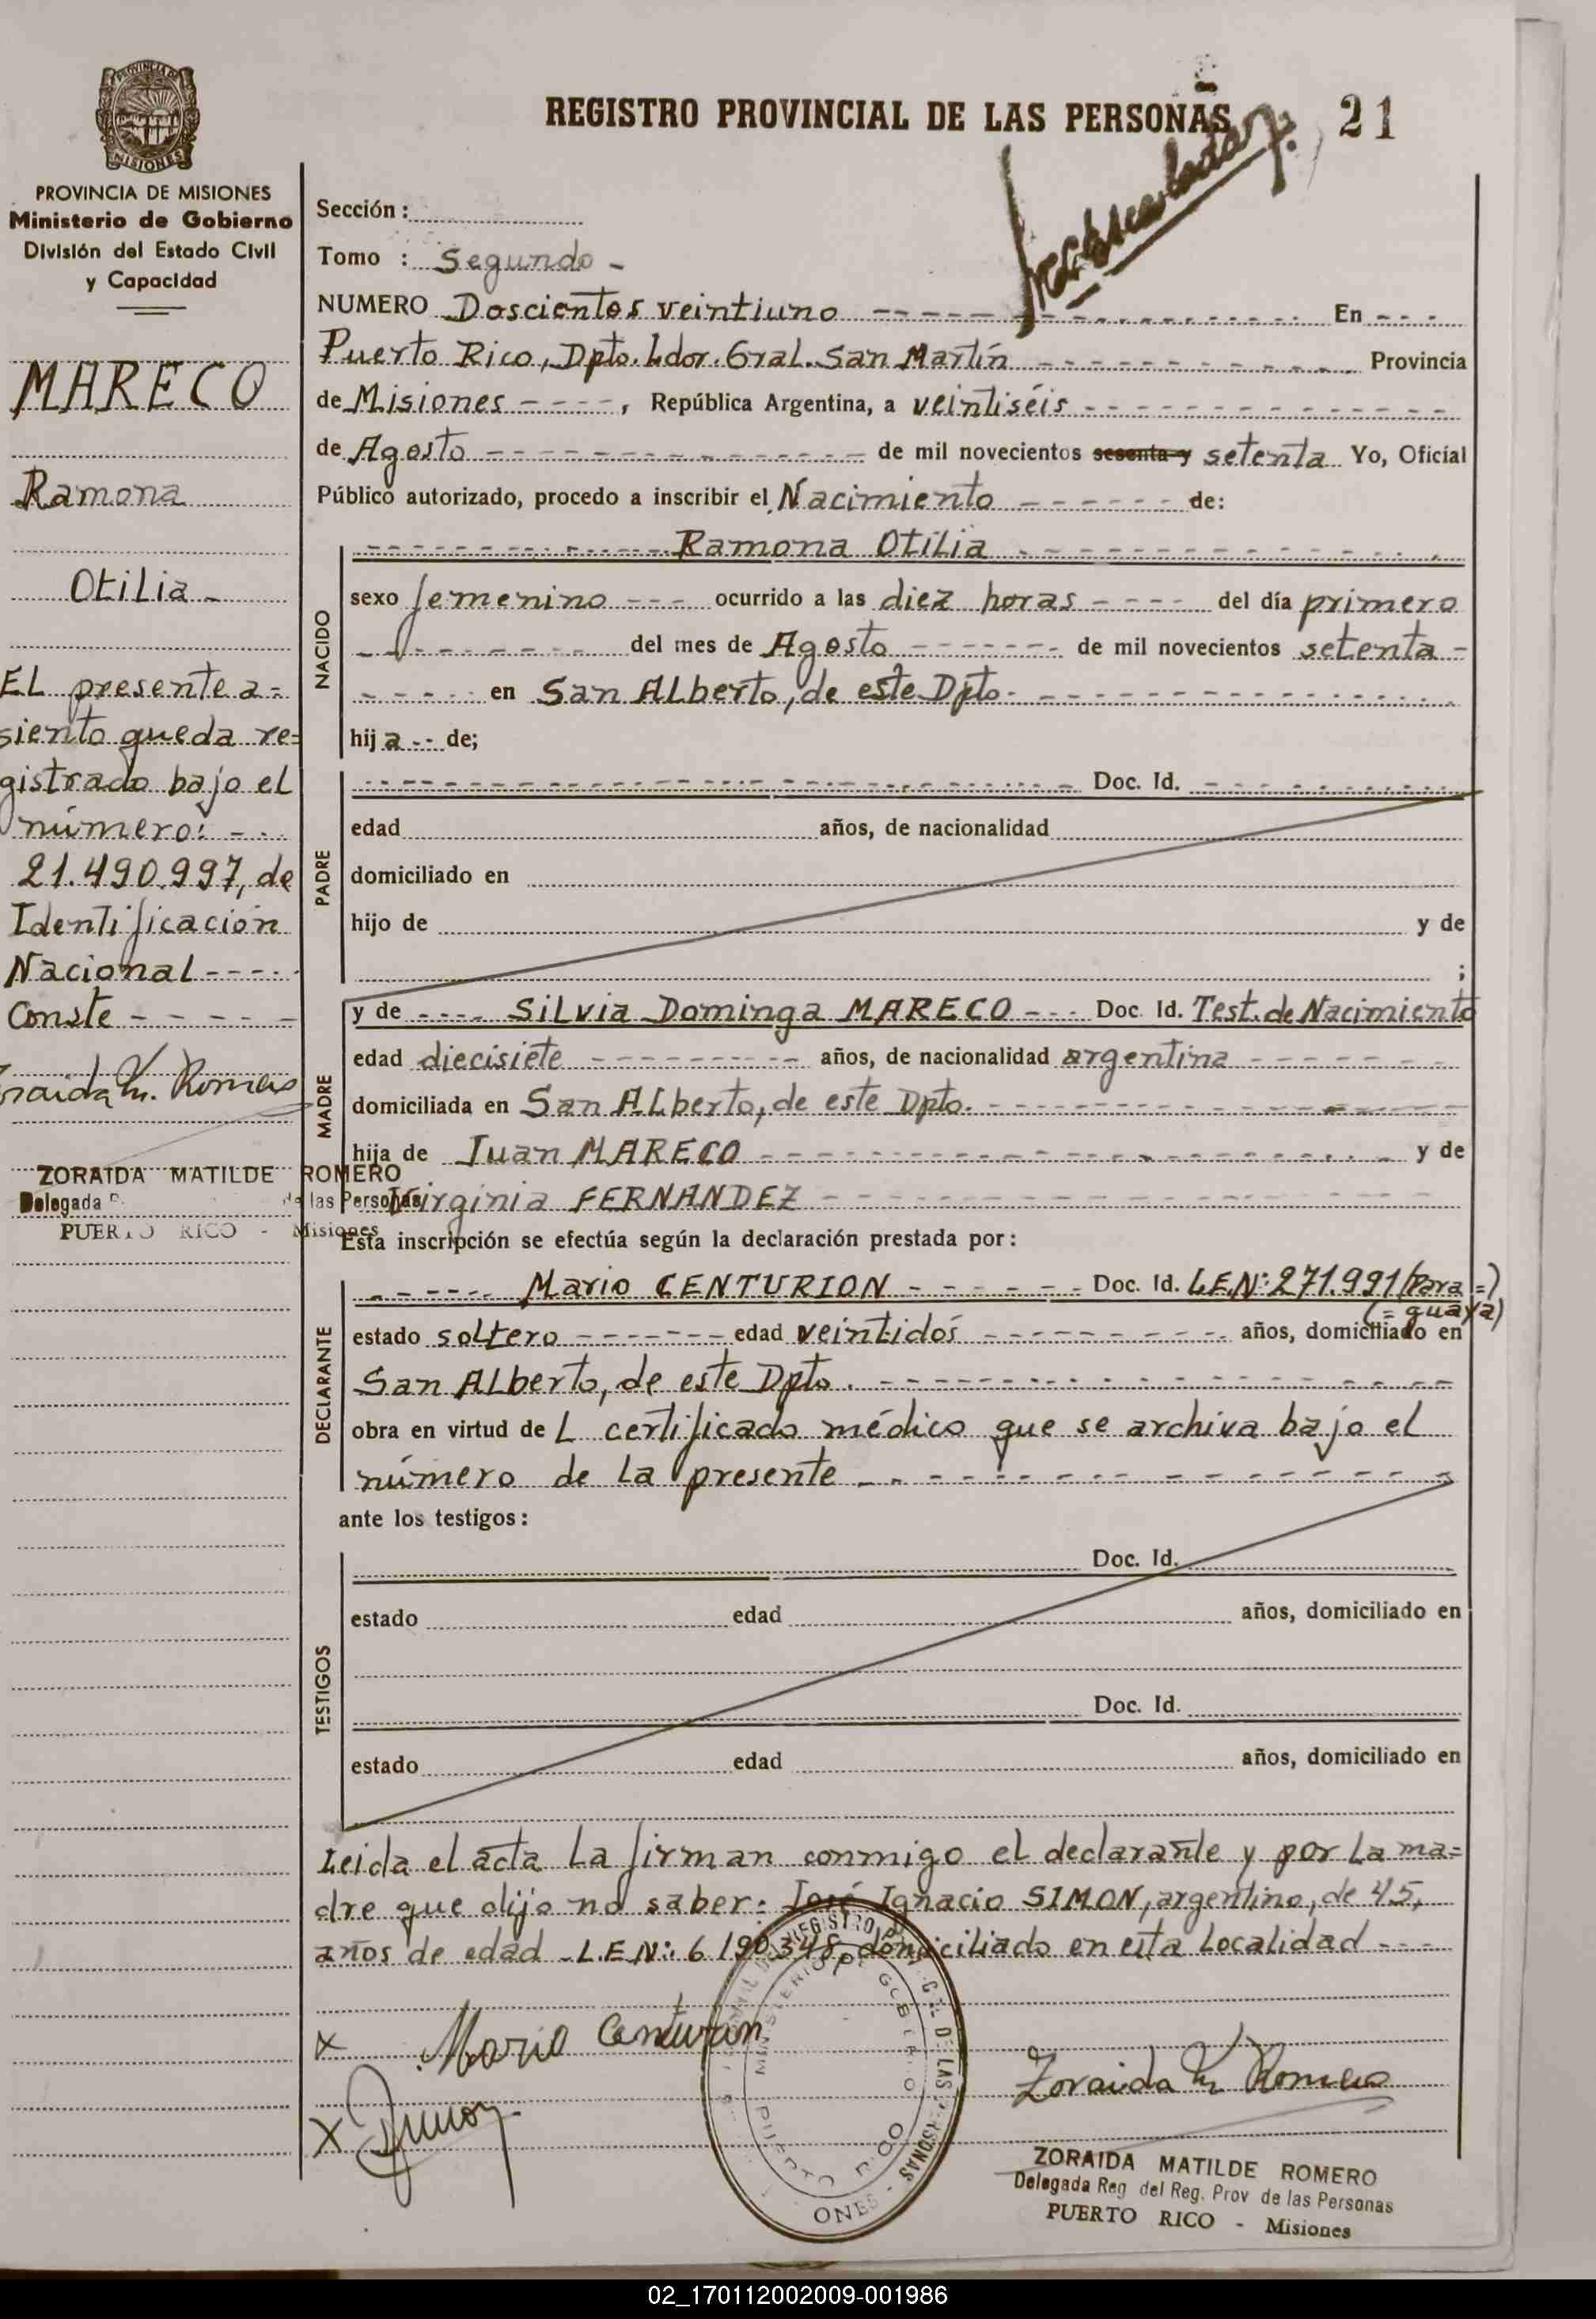 REGISTRO PROVINCIAL DE LAS PERSONAS
21
PROVINCIA DE
MISIONES
PROVINCIA DE MISIONES
Ministerio de Gobierno
División del Estado Civil
y Capacidad
MARECO
Ramona
Otilia -
EL presente a-
siento queda re=
gistrado bajo el
número: -
21.490.997, de
Identificación
Nacional - - - -
Conste - - - - -
Zoraida M. Romero
ZORAIDA MATILDE ROMERO
Delegada de las Personas
PUERTO RICO - Misiones
Sección :
Tomo : Segundo -
NUMERO Doscientos veintiuno - - - - En - - -
Puerto Rico, Dpto. Ldor. Gral. San Martín - - - - Provincia
de Misiones - - - -, República Argentina, a veintiséis - - - -
de Agosto - - - - de mil novecientos sesenta y setenta Yo, Oficial
Público autorizado, procedo a inscribir el Nacimiento - - - - de:
NACIDO
- - - - Ramona Otilia - - - -
sexo femenino - - - ocurrido a las diez horas - - - - del día primero
- - - - del mes de Agosto - - - - de mil novecientos setenta -
- - - - en San Alberto, de este Dpto. - - - -
hija - - de;
PADRE
- - - - Doc. Id. - - - -
edad años, de nacionalidad
domiciliado en
hijo de y de
;
MADRE
y de - - - - Silvia Dominga MARECO - - - Doc. Id. Test. de Nacimiento
edad diecisiete - - - - años, de nacionalidad argentina - - - -
domiciliada en San Alberto, de este Dpto. - - - -
hija de Juan MARECO - - - - y de
Virginia FERNANDEZ - - - -
Esta inscripción se efectúa según la declaración prestada por:
DECLARANTE
- - - - Mario CENTURION - - - - Doc. Id. L.E.Nº: 271.991 (Para =)
(= guaya)
estado soltero - - - - edad veintidós - - - - años, domiciliado en
San Alberto, de este Dpto. - - - -
obra en virtud de L certificado médico que se archiva bajo el
número de la presente - - - -
ante los testigos:
TESTIGOS
Doc. Id.
estado edad años, domiciliado en
Doc. Id.
estado edad años, domiciliado en
Leida el acta la firman conmigo el declarante y por la ma=
dre que dijo no saber: José Ignacio SIMON, argentino, de 45,
años de edad - L.E.Nº: 6 190.348, domiciliado en esta localidad - - -
x Mario Centurion
Zoraida M Romero
x
REGISTRO DE LAS PERSONAS
MINISTERIO DE GOBIERNO
PUERTO RICO
ZORAIDA MATILDE ROMERO
Delegada Reg del Reg. Prov de las Personas
PUERTO RICO - Misiones
02_170112002009-001986